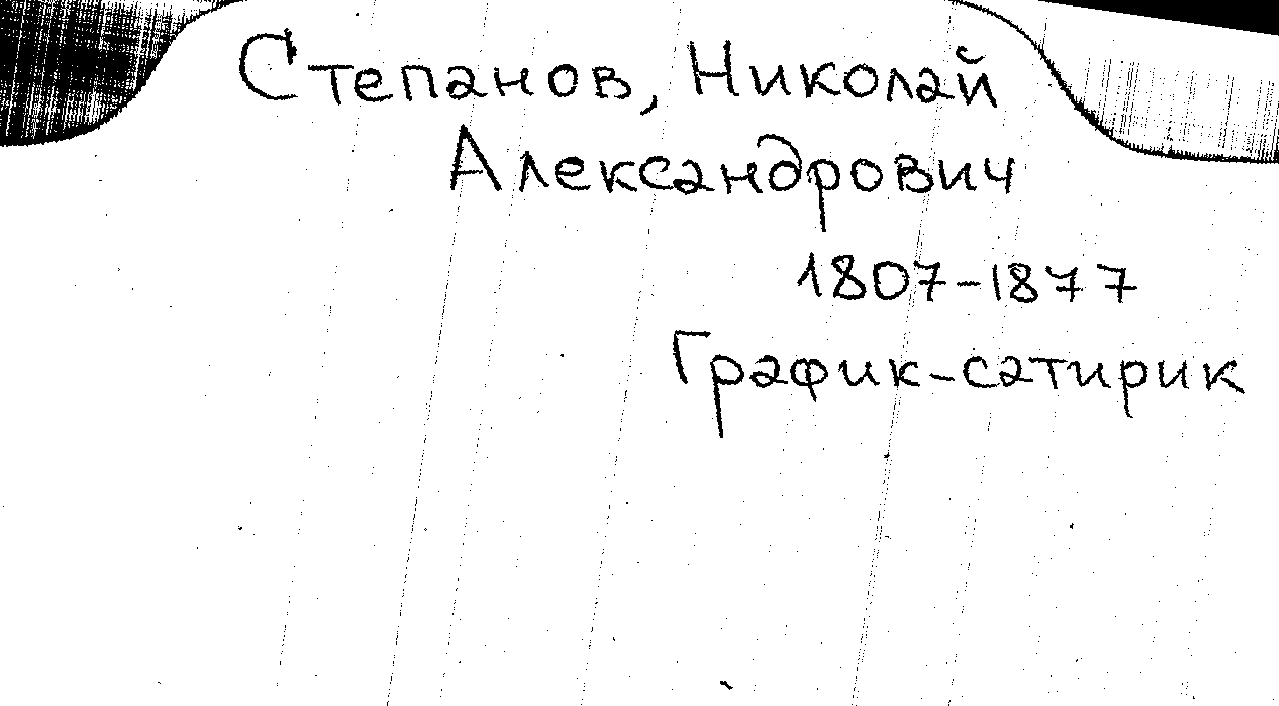 Степанов, Николай
Александрович
1807-1877
График-сатирик